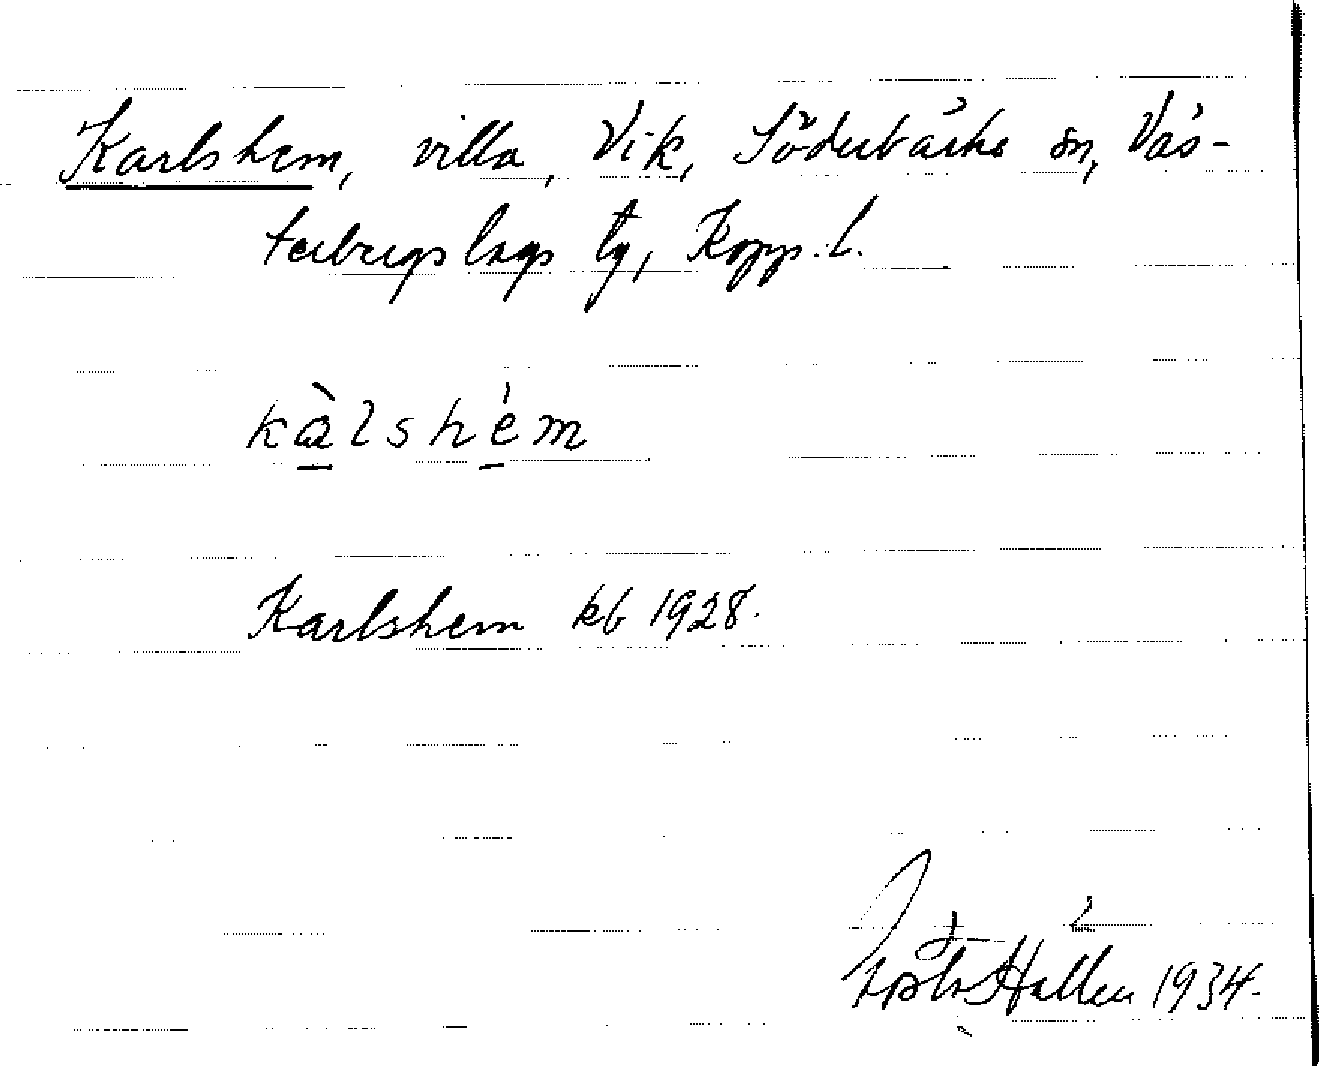 Karlshem, villa, Vik, Söderbärke sn, Väs-
terbergslags tg, Kopp. l.
kàlshém
Karlshem kb 1928.
Hallén 1934.